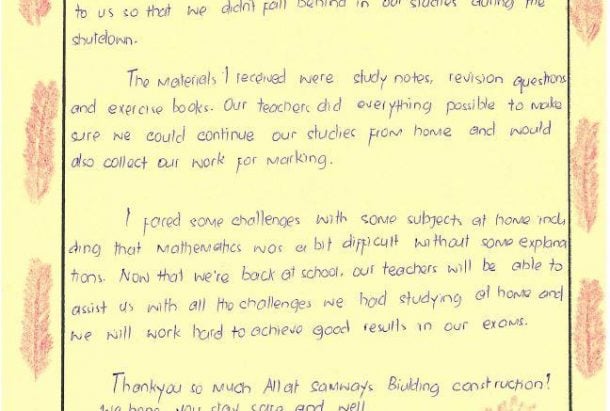 to us so that we didn't fall behind in our studies during the
shutdown.
The Materials I received were study notes, revision questions
and exercise books. Our teachers did everything possible to make
sure we could continue our studies from home and would
also collect our work for marking.
I faced some challenges with some subjects at home inclu
ding that Mathematics was a bit difficult without some explana
tions. Now that we're back at school, our teachers will be able to
assist us with all the challenges we had studying at home and
we will work hard to achieve good results in our exams.
Thankyou so much All at Samways Biulding construction!
We hope you stay safe and well